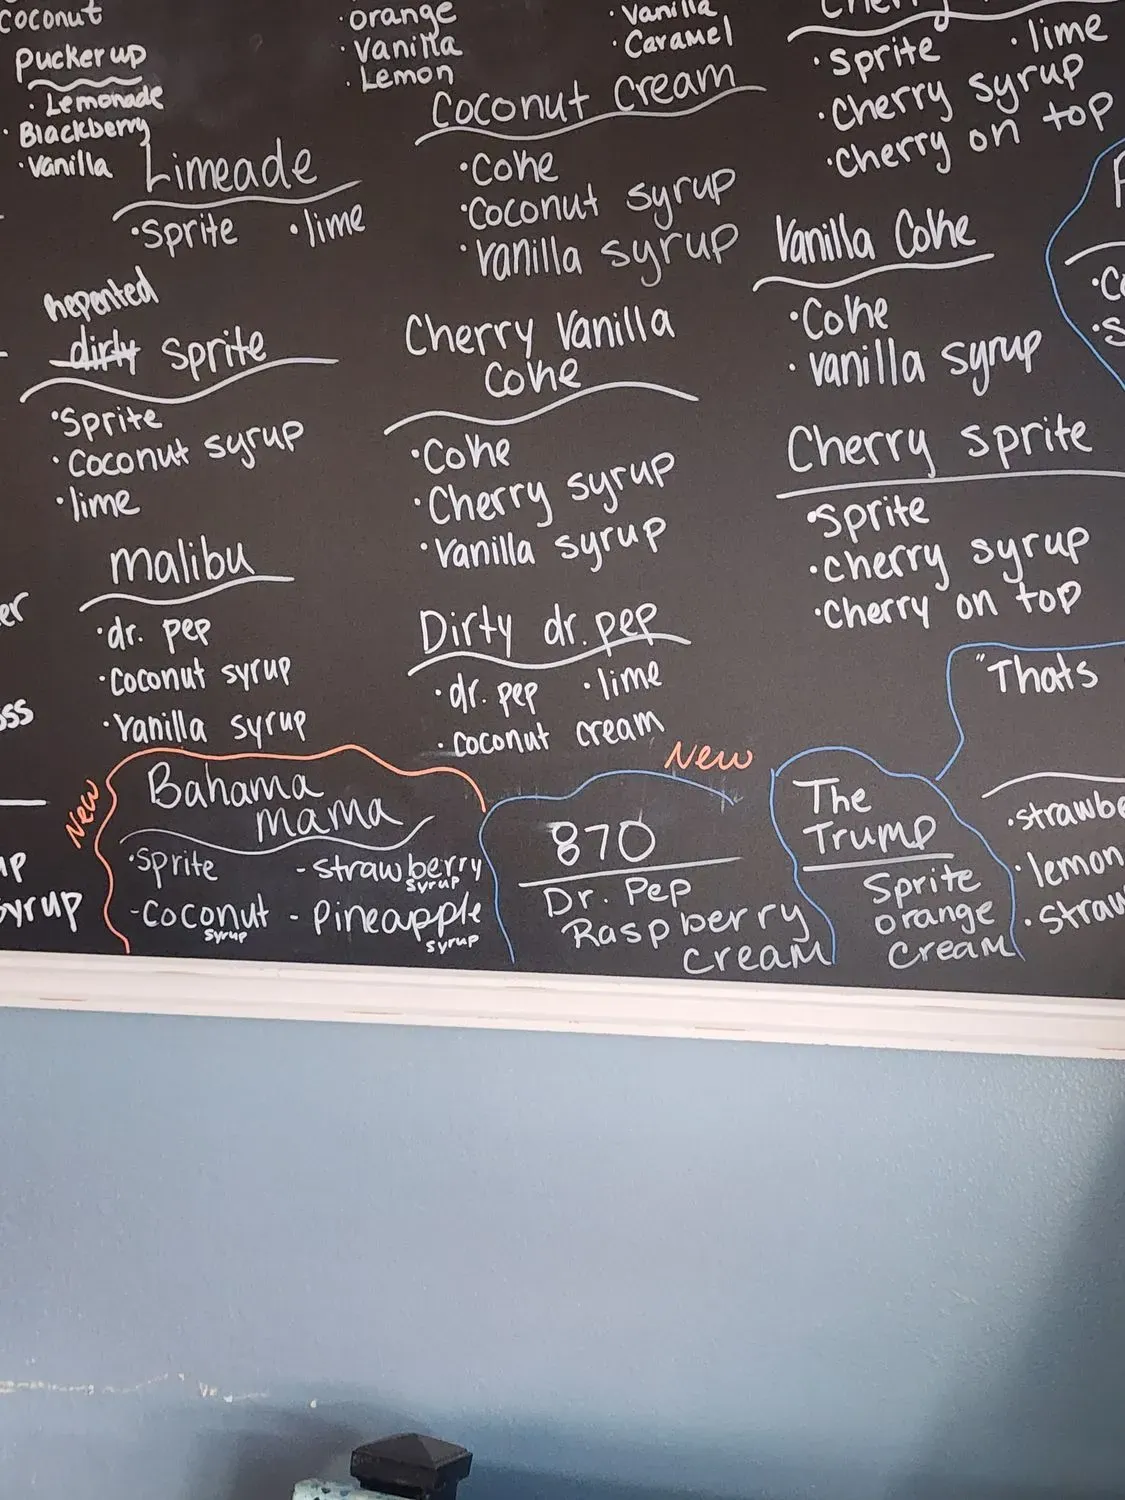 coconut
pucker up
· Lemonade
· Blackberry
· vanilla
· orange
· Vanilla
· Lemon
· Vanilla
· Caramel
· sprite · lime
· cherry syrup
· cherry on top
Limeade
· sprite · lime
Coconut Cream
· Coke
· Coconut syrup
· vanilla syrup
Vanilla Coke
· Coke
· vanilla syrup
repented
dirty sprite
· Sprite
· Coconut syrup
· lime
Cherry Vanilla
Coke
· Coke
· Cherry syrup
· Vanilla syrup
Cherry sprite
· sprite
· cherry syrup
· Cherry on top
malibu
· dr. pep
· Coconut syrup
· Vanilla syrup
Dirty dr. pep
· dr. pep · lime
· coconut cream
"Thats
New
Bahama
mama
· sprite - strawberry
syrup
- Coconut - Pineapple
syrup syrup
New
870
Dr. Pep
Raspberry
cream
The
Trump
Sprite
orange
cream
· lemon
syrup